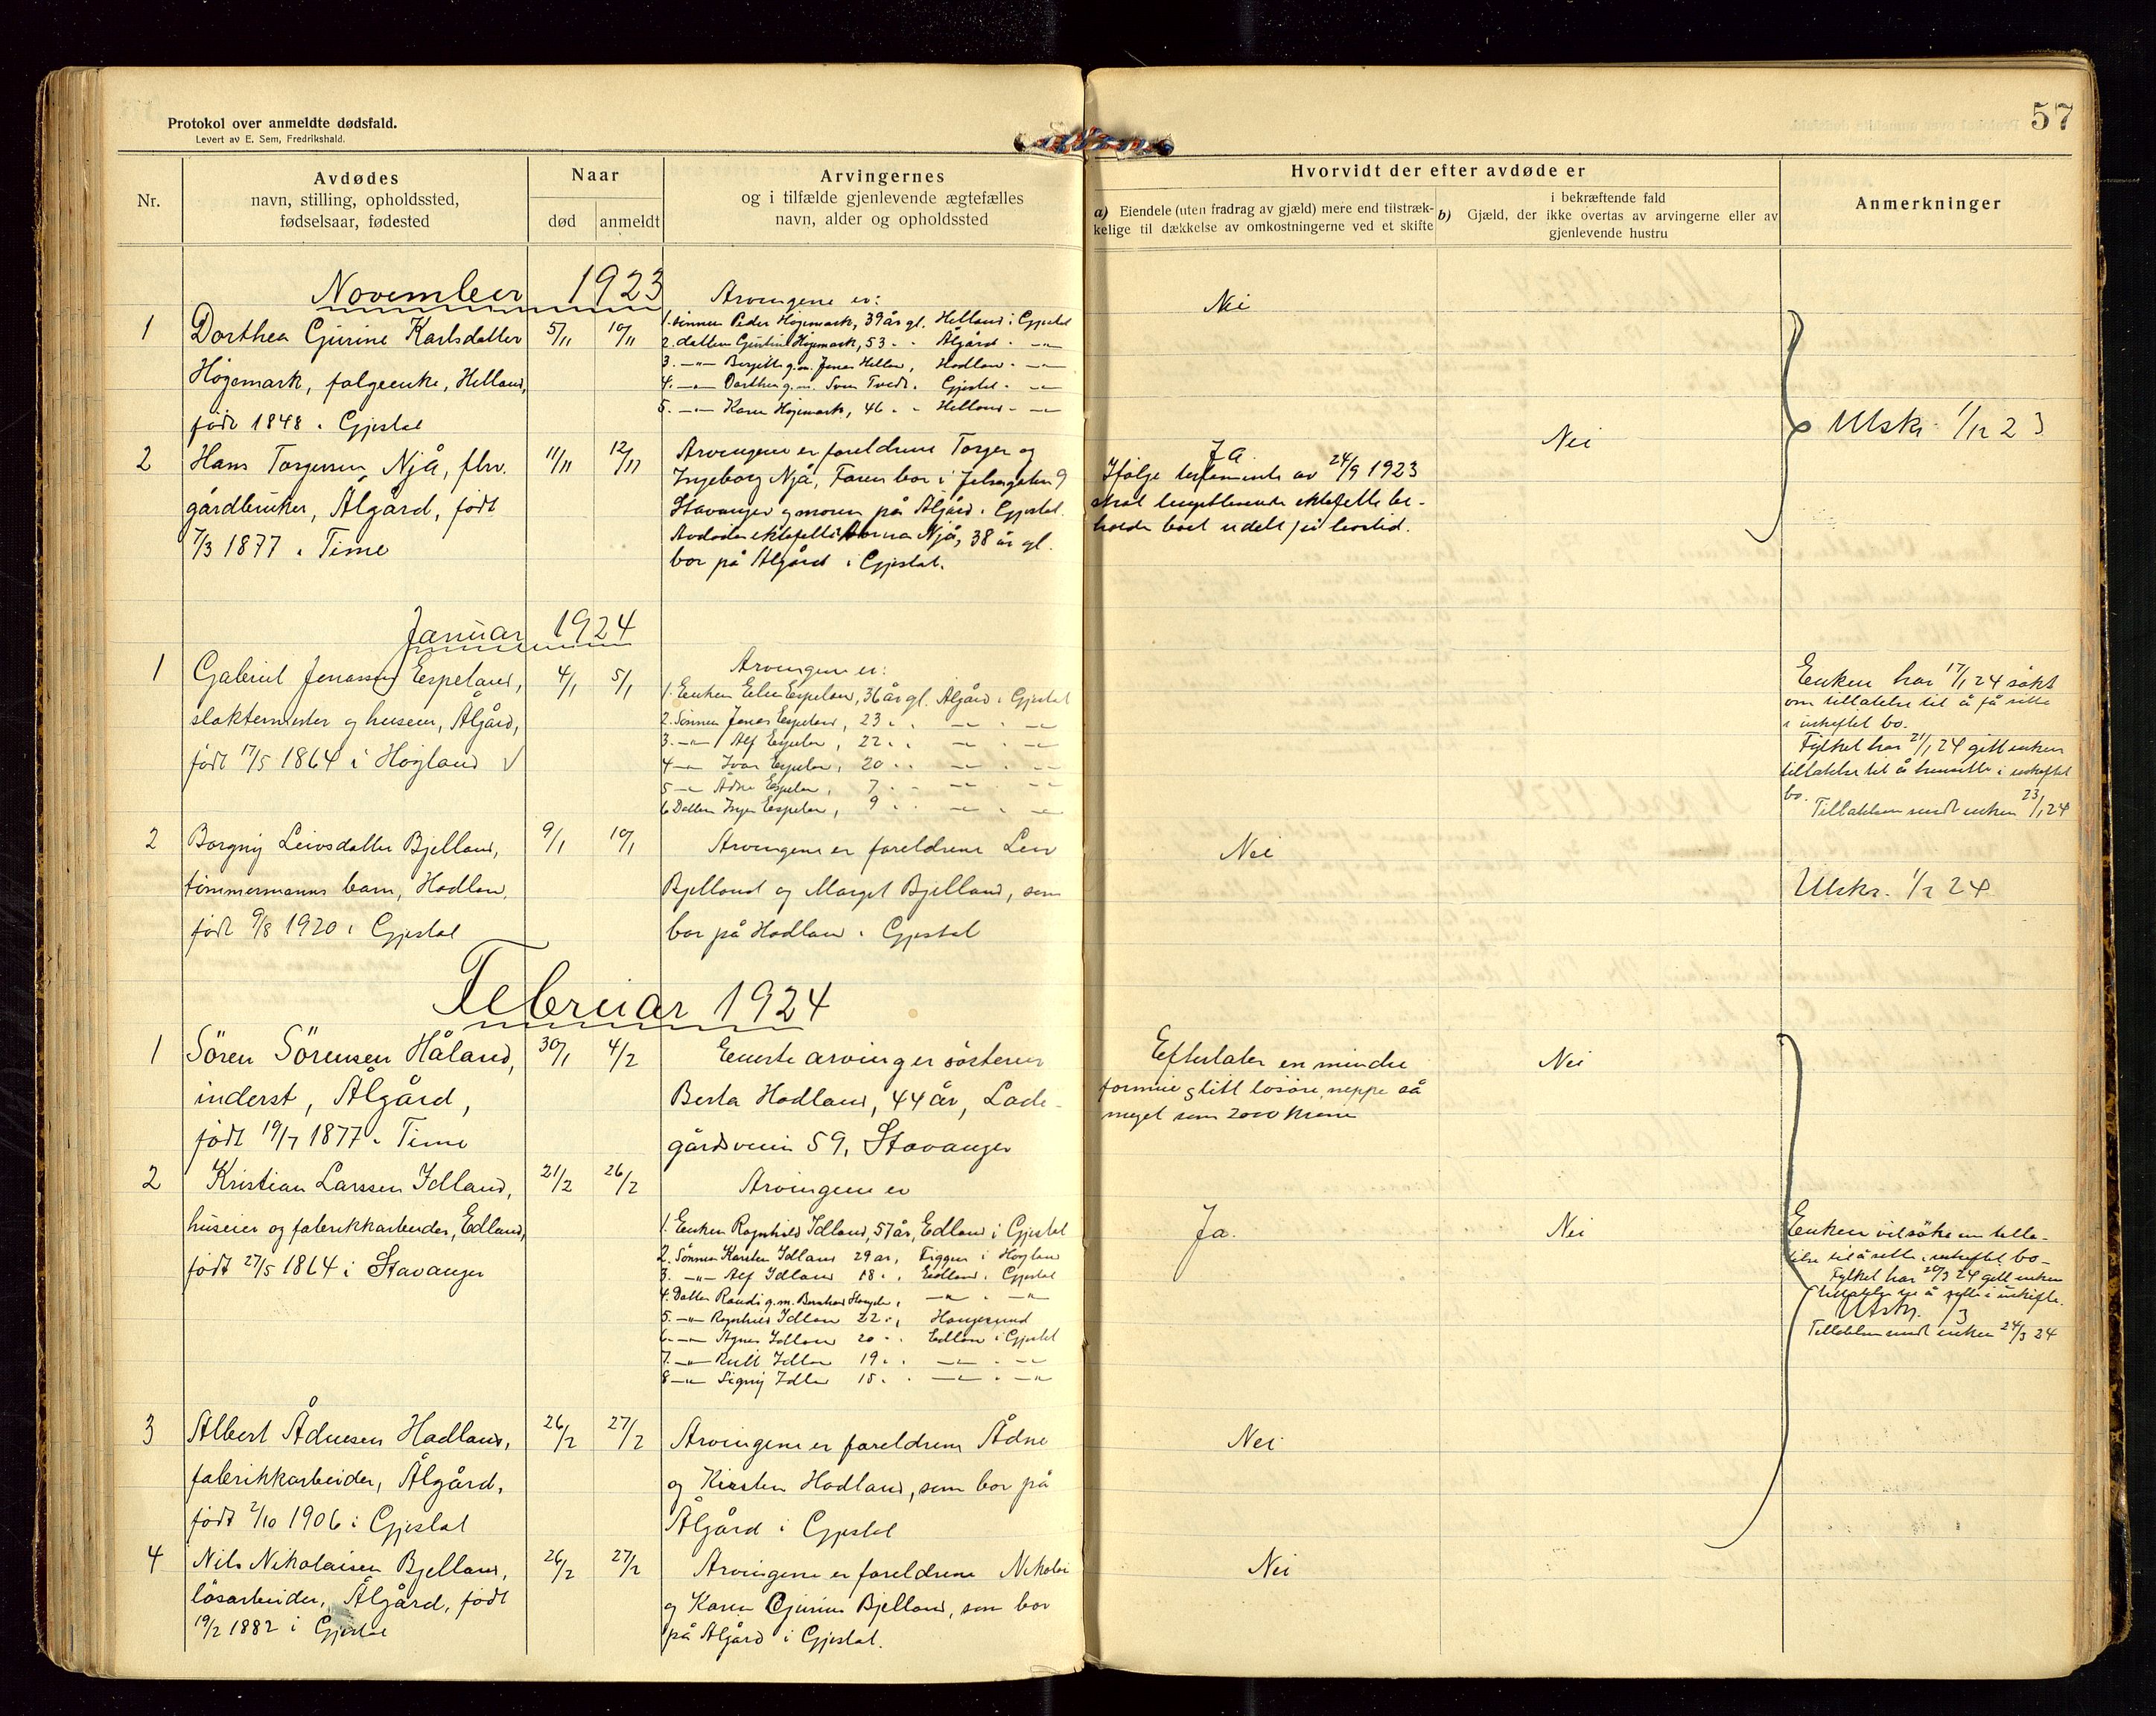 Protokol over anmeldte dødsfald.
Levert av E. Sem, Fredrikshald.
57
Nr.
Avdødes
navn, stilling, opholdssted,
fødselsaar, fødested
Naar
død
anmeldt
Arvingernes
og i tilfælde gjenlevende ægtefælles
navn, alder og opholdssted
Hvorvidt der efter avdøde er
a) Eiendele (uten fradrag av gjæld) mere end tilstræk-
kelige til dækkelse av omkostningerne ved et skifte
i bekræftende fald
b) Gjæld, der ikke overtas av arvingerne eller av
gjenlevende hustru
Anmerkninger
November 1923
1
Dorthea Gurine Karlsdatter
Høgemark, folgeenke, Helland,
født 1848 i Gjestal
5/11
10/11
Arvingene er:
1. sønnen Peder Høgemark, 39 år gl. Helland i Gjestal
2. datteren Høgemark, 53 " " Ålgård " -"-
3. -"- g.m. Jonas Helland, Hadland " -"-
4. -"- Dorthea g.m. Sven Tvedt. Gjestal " -"-
5. -"- Karen Høgemark, 46 " " Helland " -"-
Nei
Utskr. 1/12 23
2
Hans Torgersen Njå, fhv.
gårdbruker, Ålgård, født
7/3 1877 i Time
11/11
12/11
Arvingene er foreldrene Torger og
Ingeborg Njå, Faren bor i Jelsagaten 9
Stavanger og moren på Ålgård i Gjestal.
Avdødes ektefelle Anna Njå, 38 år gl.
bor på Ålgård i Gjestal.
Ja
Ifølge testamente av 24/9 1923
skal lengstlevende ektefelle be-
holde boet udelt på livstid.
Nei
Januar 1924
1
Gabriel Jonassen Espeland,
slaktermester og huseier, Ålgård,
født 17/5 1864 i Høyland √
4/1
5/1
Arvingene er:
1. Enken Espeland, 36 år gl. Ålgård i Gjestal
2. Sønnen Jonas Espeland, 23 " " -"- " -"-
3. -"- Alf Espeland, 22 " " -"- " -"-
4 -"- Ivar Espeland, 20 " " -"- " -"-
5 -"- Ådne Espeland, 7 " " -"- " -"-
6 Datter Inger Espeland, 9 " " -"- " -"-
Enken har 17/1 24 søkt
om tillatelse til å få sitte
i uskiftet bo.
Fylket har 21/1 24 gitt enken
tillatelse til å hensitte i uskiftet
bo.
Tillatelsen sendt enken 23/1 24
2
Borgny Leivsdatter Bjelland,
timmermanns barn, Hadland,
født 9/8 1920 i Gjestal
9/1
10/1
Arvingene er foreldrene Leiv
Bjelland og Marget Bjelland, som
bor på Hadland i Gjestal
Nei
Utskr. 1/2 24
Februar 1924
1
Sören Sörensen Håland,
inderst, Ålgård,
født 19/7 1877 i Time
30/1
4/2
Eneste arving er søsteren
Berta Hadland, 44 år, Lade-
gårdsveien 59, Stavanger
Efterlater en mindre
formue & litt løsøre, neppe så
meget som 2000 kroner
Nei
2
Kristian Larssen Idland,
huseier og fabrikkarbeider, Edland,
født 27/5 1864 i Stavanger
21/2
26/2
Arvingene er
1. Enken Ragnhild Idland, 57 år, Edland i Gjestal
2. Sønnen Karsten Idland 29 år, Figgen i Høyland
3. -"- Alf Idland 18 " , Edland i Gjestal
4. Datter Randi g.m. Bernhard , -"- " -"-
5. -"- Ragnhild Idland 22 " , Haugesund
6. -"- Agnes Idland 20 " " Edland i Gjestal
7. -"- Rutt Idland 19 " " -"- " -"-
8 -"- Signy Idland 15 " " -"- " -"-
Ja.
Nei
Enken vil söke om tilla-
telse til å sitte i uskiftet bo-
Fylket har 20/3 24 gitt enken
tillatelse til å sitte i uskifte.
Utskr. 3
Tillatelsen sendt enken 24/3 24
3
Albert Ådnesen Hadland,
fabrikkarbeider, Ålgård,
født 2/10 1906 i Gjestal
26/2
27/2
Arvingene er foreldrene Ådne
og Kirsten Hadland, som bor på
Ålgård i Gjestal
Nei
4
Nils Nikolaisen Bjelland,
løsarbeider, Ålgård, født
19/2 1882 i Gjestal
26/2
27/2
Arvingerne er foreldrene Nikolai
og Karen Gurine Bjelland, som bor
på Ålgård i Gjestal.
Nei